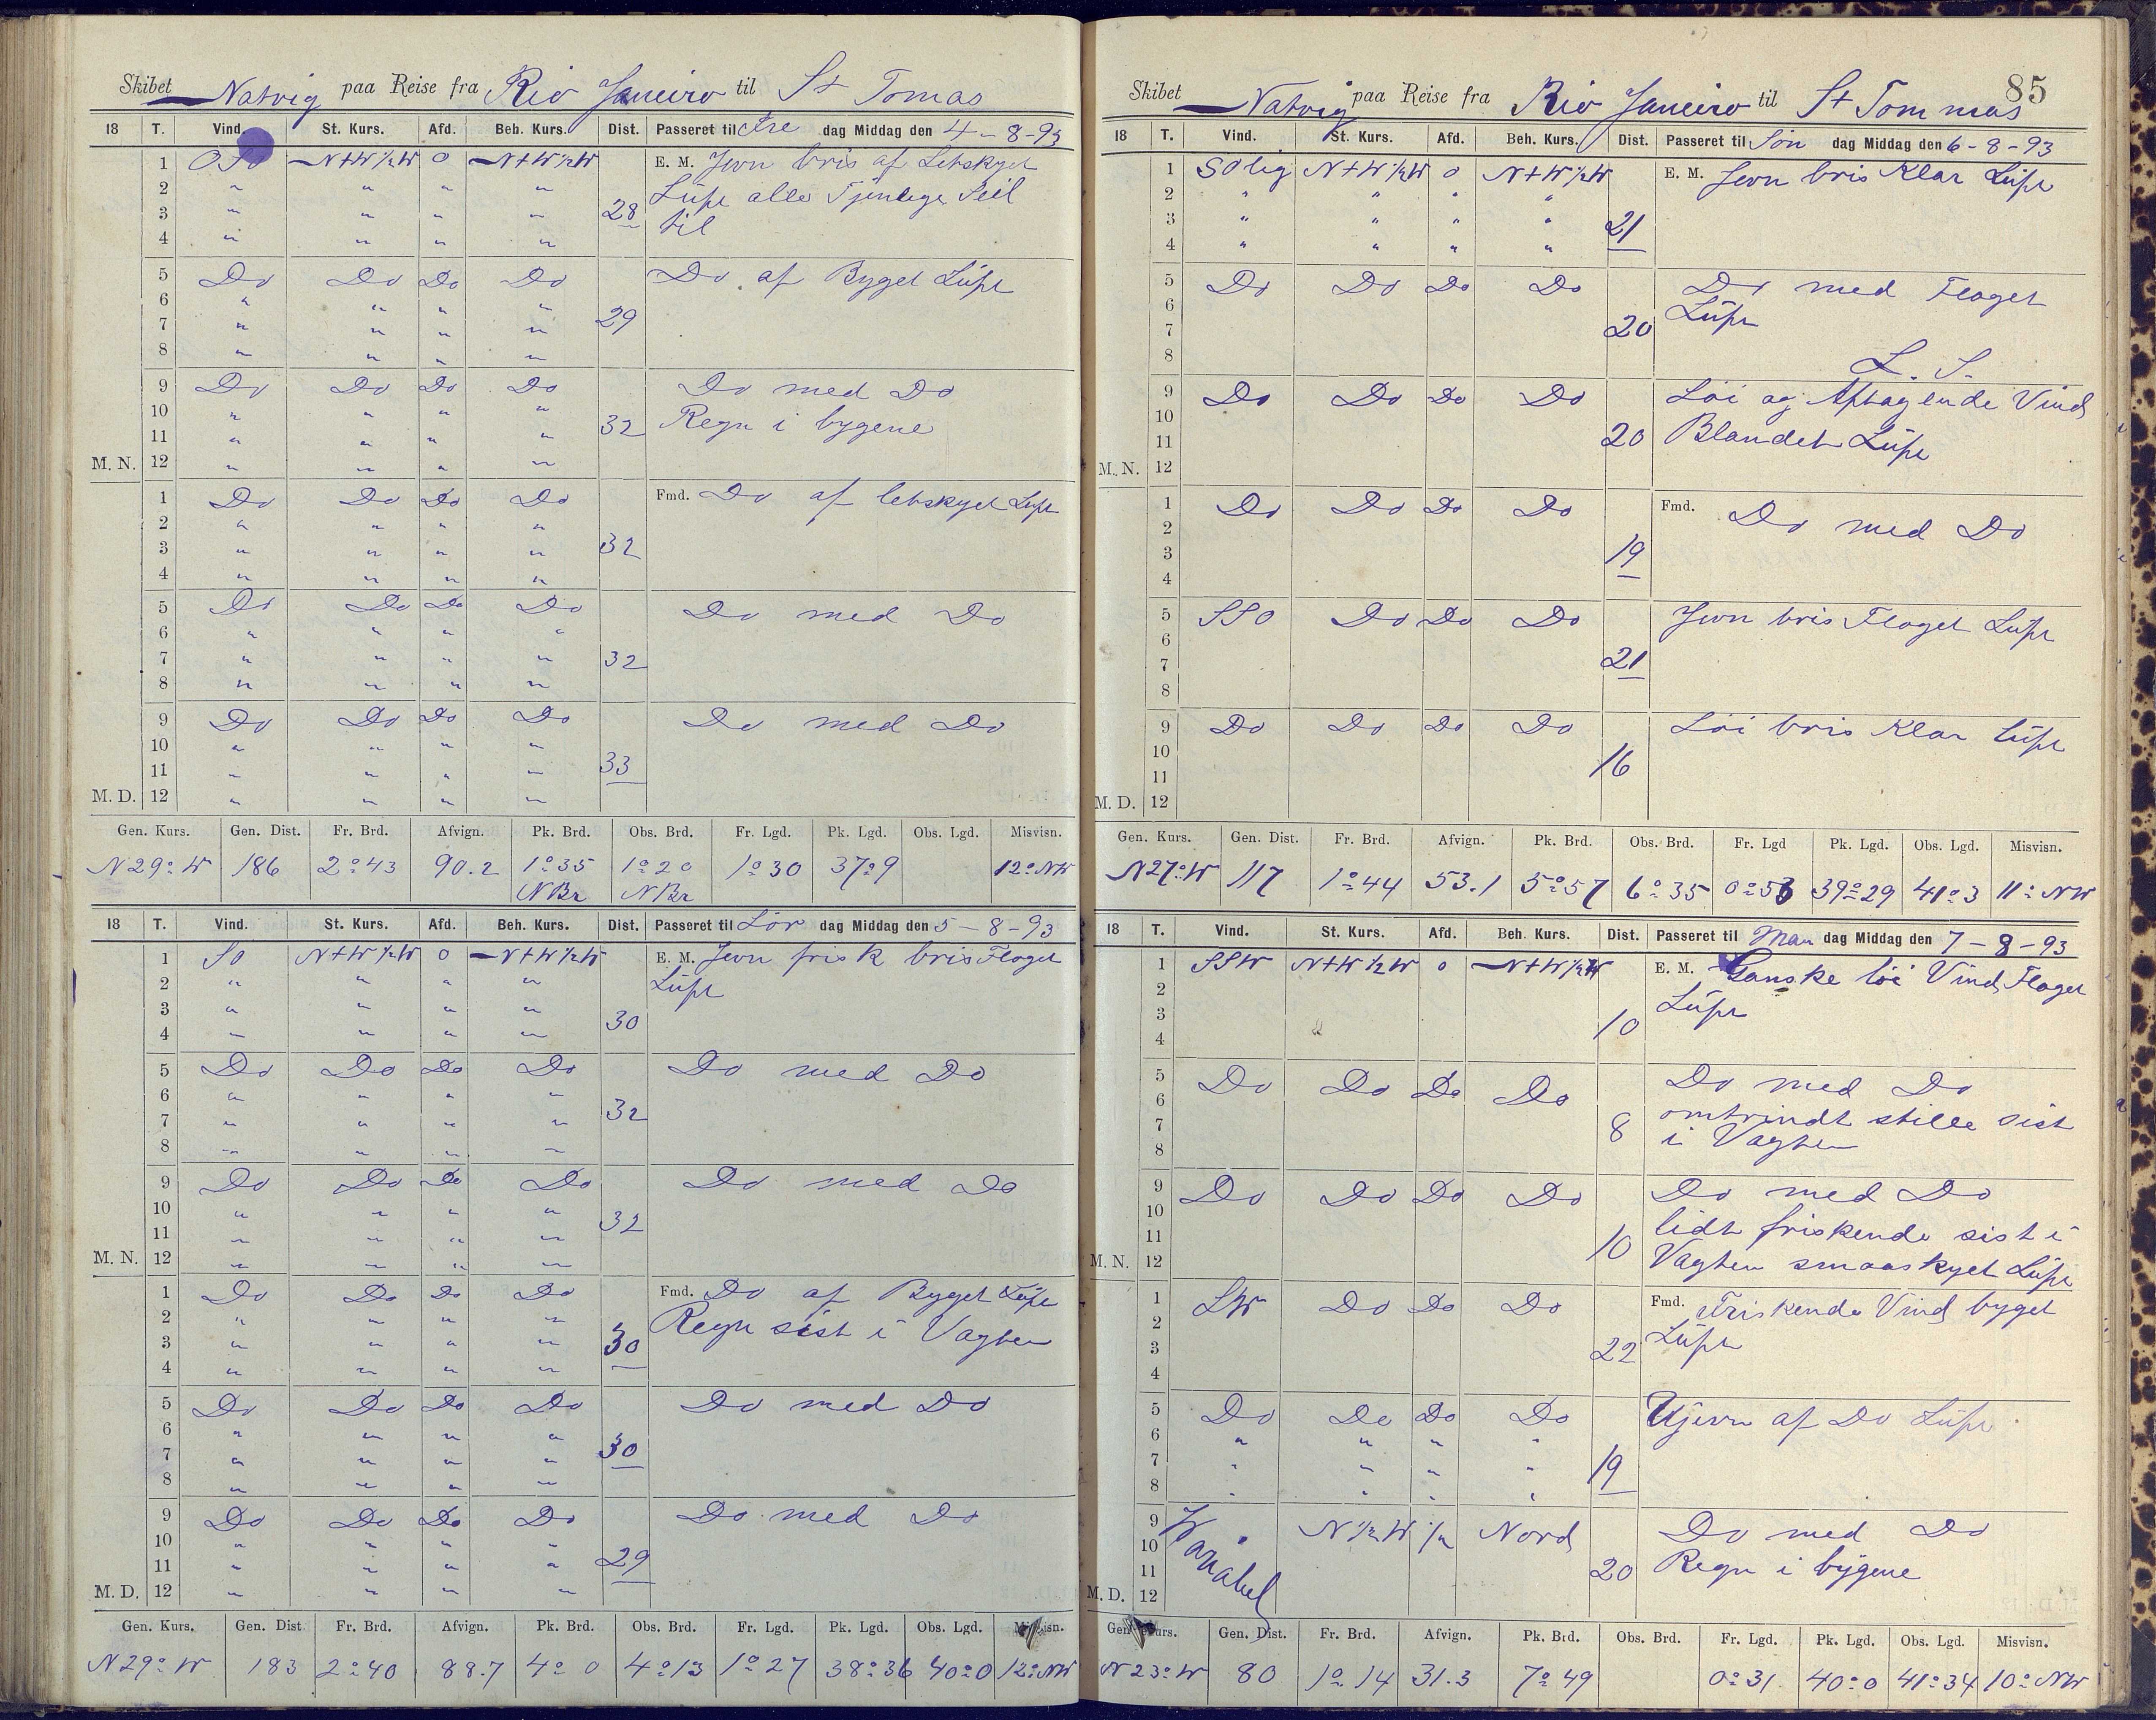 Skibet Natvig paa Reise fra Rio Janeiro til St Tomas
18 T. Vind. St. Kurs. Afd. Beh. Kurs. Dist. Passeret til Fre dag Middag den 4-8-93
1 OSO N+W½W 0 N+W½W E. M. Jevn bris af Letskyet
2 " " " " Lüft alle Tjenlige Seil
3 " " " " 28 til
4 " " " "
5 Do Do Do Do Do af Byget Lüft
6 " " " "
7 " " " " 29
8 " " " "
9 Do Do Do Do Do med Do
10 " " " " Regn i bygene
11 " " " " 32
M. N. 12 " " " "
1 Do Do Do Do Fmd. Do af letskyet Lüft
2 " " " "
3 " " " " 32
4 " " " "
5 Do Do Do Do Do med Do
6 " " " "
7 " " " " 32
8 " " " "
9 Do Do Do Do Do med Do
10 " " " "
11 " " " " 33
M. D. 12 " " " "
Gen. Kurs. Gen. Dist. Fr. Brd. Afvign. Pk. Brd. Obs. Brd. Fr. Lgd. Pk. Lgd. Obs. Lgd. Misvisn.
N29°W 186 2°43 90.2 1°35 1°20 1°30 37°9 12°NW
NBr NBr
18 T. Vind. St. Kurs. Afd. Beh. Kurs. Dist. Passeret til Lör dag Middag den 5-8-93
1 SO N+W½W 0 N+W½W E. M. Jevn frisk bris Floget
2 " " " " Lüft
3 " " " "
4 " " " " 30
5 Do Do Do Do Do med Do
6 " " " "
7 " " " " 32
8 " " " "
9 Do Do Do Do Do med Do
10 " " " "
11 " " " " 32
M. N. 12 " " " "
1 Do Do Do Do Fmd. Do af Byget Lüft
2 " " " " Regn sist i Vagten
3 " " " " 30
4 " " " "
5 Do Do Do Do Do med Do
6 " " " "
7 " " " " 30
8 " " " "
9 Do Do Do Do Do med Do
10 " " " "
11 " " " " 29
M. D. 12 " " " "
Gen. Kurs. Gen. Dist Fr. Brd. Afvign. Pk. Brd. Obs. Brd. Fr. Lgd. Pk. Lgd. Obs. Lgd. Misvisn.
N29°W 183 2°40 88.7 4°0 4°13 1°27 38°36 40°0 12°NW
85
Skibet Natvig paa Reise fra Rio Janeiro til St Tommas
18 T. Vind. St. Kurs. Afd. Beh. Kurs. Dist. Passeret til Sön dag Middag den 6-8-93
1 SOlig N+W½W 0 N+W½W E. M. Jevn bris Klar Lüft
2 " " " "
3 " " " " 21
4 " " " "
5 Do Do Do Do Do med Floget
6 Lüft
7 20
8 L. S.
9 Do Do Do Do Löi og Aftagende Vind
10
11 20 Blandet Lüft
M. N. 12
1 Do Do Do Do Fmd. Do med Do
2
3 19
4
5 SSO Do Do Do Jevn bris Floget Lüft
6
7 21
8
9 Do Do Do Do Löi bris Klar Lüft
10 16
11
M. D. 12
Gen. Kurs. Gen. Dist. Fr. Brd. Afvign. Pk. Brd. Obs. Brd. Fr. Lgd Pk. Lgd. Obs. Lgd. Misvisn.
N27°W 117 1°44 53.1 5°57 6°35 0°53 39°29 41°3 11°NW
18 T. Vind. St. Kurs. Afd. Beh. Kurs. Dist. Passeret til Man dag Middag den 7-8-93
1 SSW N+W½W 0 N+W½W E. M. Ganske löi Vind Floget
2 Lüft
3 10
4
5 Do Do Do Do Do med Do
6 omtrindt stille sist
7 8 i Vagten
8
9 Do Do Do Do Do med Do
10 lidt friskende sist i
11 10
M. N. 12 Vagten smaaskyet Lüft
1 SW Do Do Do Fmd. Friskende Vind byget
2 Lüft
3 22
4
5 Do Do Do Do Ujevn af Do Lüft
6 " " " "
7 " " " " 19
8 " " " "
9 Variabel N½W ½ Nord Do med Do
10
11 20 Regn i bÿgene
M. D. 12
Gen. Kurs. Gen. Dist. Fr. Brd. Afvign. Pk. Brd. Obs. Brd. Fr. Lgd. Pk. Lgd. Obs. Lgd. Misvisn.
N23°W 80 1°14 31.3 7°49 0°31 40°0 41°34 10°NW